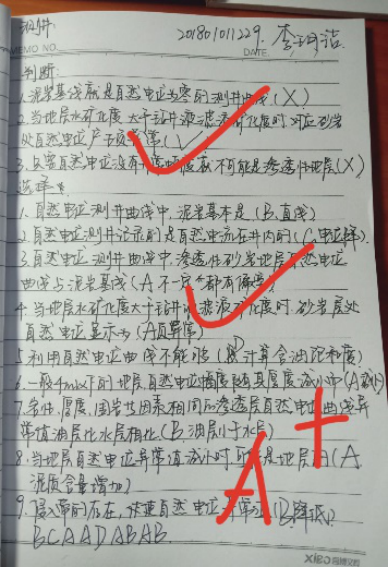 201801011229.
MEMO NO.
DATE.
判断:
1. 泥岩基线就是自然电位为零的测井曲线 (X)
2. 当地层水矿化度大于钻井液滤液矿化度时,对应砂岩
处自然电位产生负异常 (√)
3. 只要自然电位没有异常幅度就不可能是渗透性地层 (X)
选择:
1. 自然电位测井曲线中,泥岩基本是 (B.直线)
2. 自然电位测井记录的是自然电流在井内的 (C 电位降)
3. 自然电位测井曲线中,渗透性砂岩地层自然电位
曲线与泥岩基线 (A 不一定都有偏离)
4. 当地层水矿化度大于钻井液滤液矿化度时,砂岩层处
自然电位显示为 (A负异常)
5. 利用自然电位曲线不能够 (D 计算含油饱和度)
6. 一般4m以下的地层,自然电位幅度随其厚度减小 (A
7. 岩性,厚度,围岩性因素相同的渗透层自然电位曲线异
常值油层比水层相比 (B.油层小于水层)
8. 当地层自然电位异常值减小时,可能是地层的 (A
泥质含量增加)
9. 侵入带的存在,使自然电位异常 (B降低)
BCAADABAB.
A+